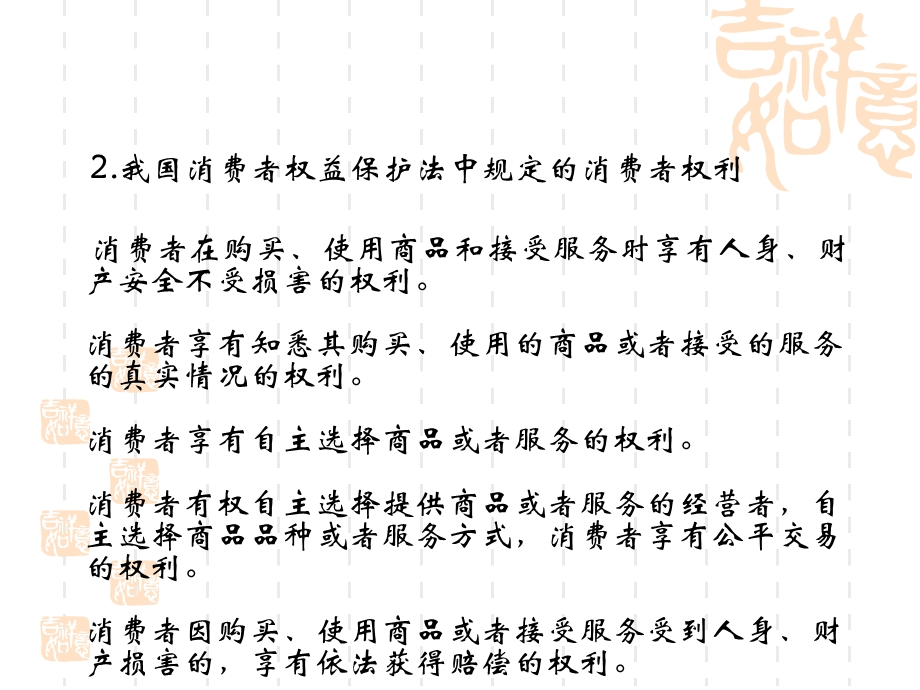 吉祥如意
2.我国消费者权益保护法中规定的消费者权利
消费者在购买、使用商品和接受服务时享有人身、财
产安全不受损害的权利。
消费者享有知悉其购买、使用的商品或者接受的服务
的真实情况的权利。
消费者享有自主选择商品或者服务的权利。
消费者有权自主选择提供商品或者服务的经营者，自
主选择商品品种或者服务方式，消费者享有公平交易
的权利。
消费者因购买、使用商品或者接受服务受到人身、财
产损害的，享有依法获得赔偿的权利。
吉祥如意
吉祥如意
吉祥如意
吉祥如意
吉祥如意
吉祥如意